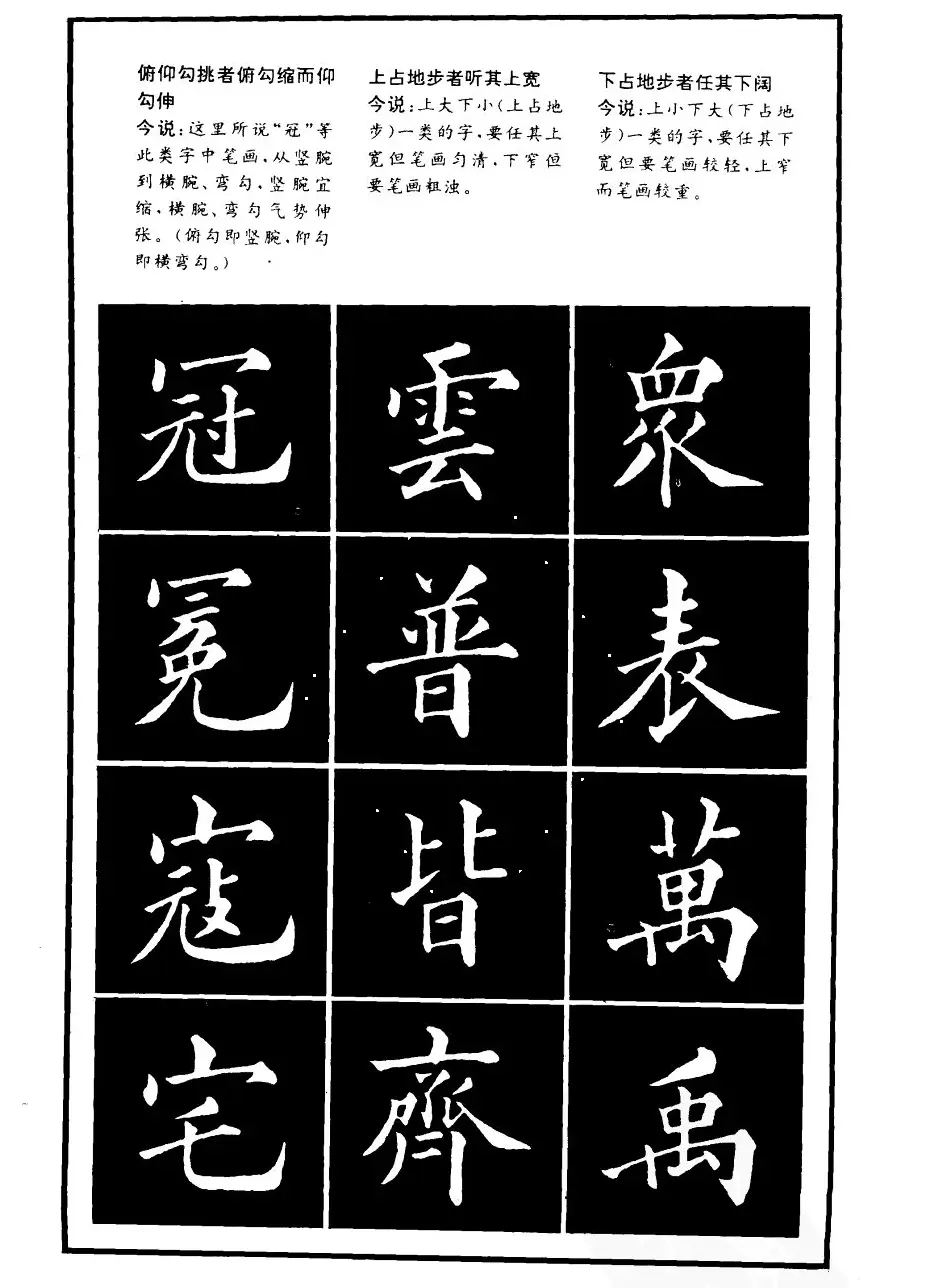 俯仰勾挑者俯勾缩而仰
勾伸
今说：这里所说“冠”等
此类字中笔画，从竖腕
到横腕、弯勾，竖腕宜
缩，横腕、弯勾气势伸
张。（俯勾即竖腕，仰勾
即横弯勾。）
上占地步者听其上宽
今说：上大下小（上占地
步）一类的字，要任其上
宽但笔画匀清，下窄但
要笔画粗浊。
下占地步者任其下阔
今说：上小下大（下占地
步）一类的字，要任其下
宽但要笔画较轻，上窄
而笔画较重。
冠 雲 衆
冕 普 表
寇 皆 萬
宅 齊 禹